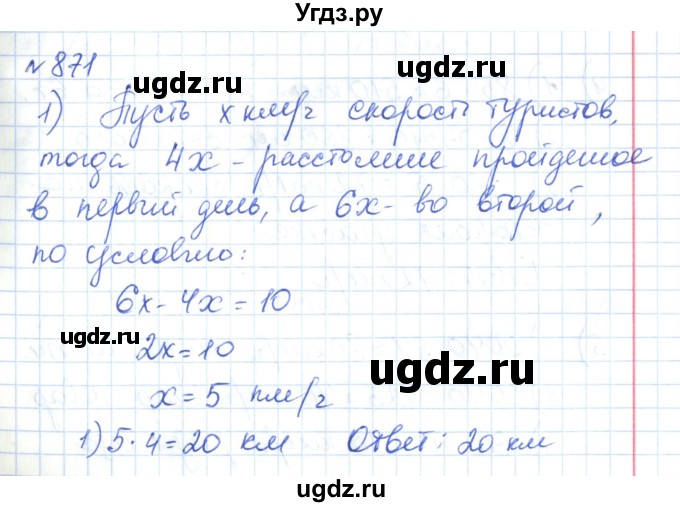 Угдз.ру
№ 871
ugdz.ru ugdz.ru
1) Пусть x км/ч скорость туристов,
тогда 4x - расстояние пройденое
в первый день, а 6x - во второй,
по условию:
ugdz.ru
6x - 4x = 10
ugdz.ru
2x = 10
ugdz.ru
x = 5 км/ч
1) 5 · 4 = 20 км Ответ: 20 км
ugdz.ru